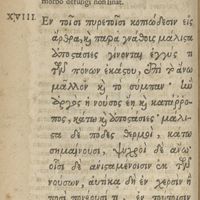 morbo defungi non sinat.
XVIII. Εν τοῖσι πυρετοῖσι κοπιώδεσιν εἰς
ἄρθρα, κ παρὰ γνάθοις μάλιστα
ἀποστάσιες γίνονται, ἐγγύς τι
τῶν πόνων ἑκάστου, ἐπὶ τὸ ἄνω
μᾶλλον κ τὸ σύμπαν.
ἀργὸς ἡ νοῦσος ἔῃ κ κατάρρο-
πος, κάτω κ ἀποστάσιες· μάλισ-
τα δὲ πόδες θερμοὶ, κάτω
σημαίνουσι, ψυχροὶ δὲ ἄνω·
οἷσι δὲ ἀνισταμένοισιν ἐκ τῶν
νούσων, αὐτίκα δὴ ἐν χερσὶν ἢ
ποσὶ πονέουσι τι, ἐν τουτέοισιν